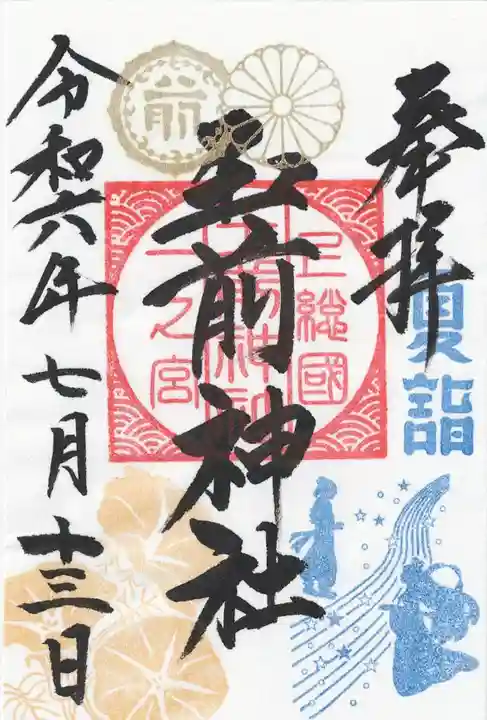 奉拝
夏詣
前
上總國
一之宮
玉前神社
令和六年七月十三日